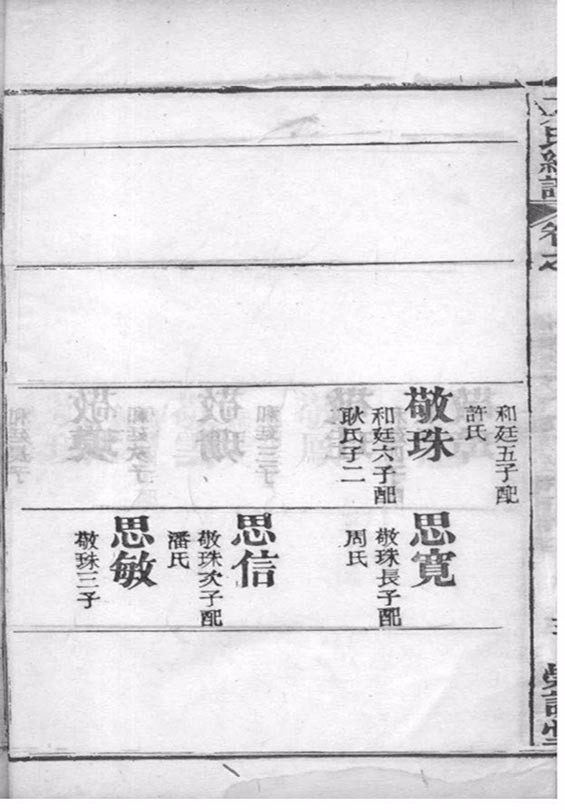 和廷五子配
許氏
敬珠
和廷六子配
耿氏子二
思寬
敬珠長子配
周氏
思信
敬珠次子配
潘氏
思敏
敬珠三子